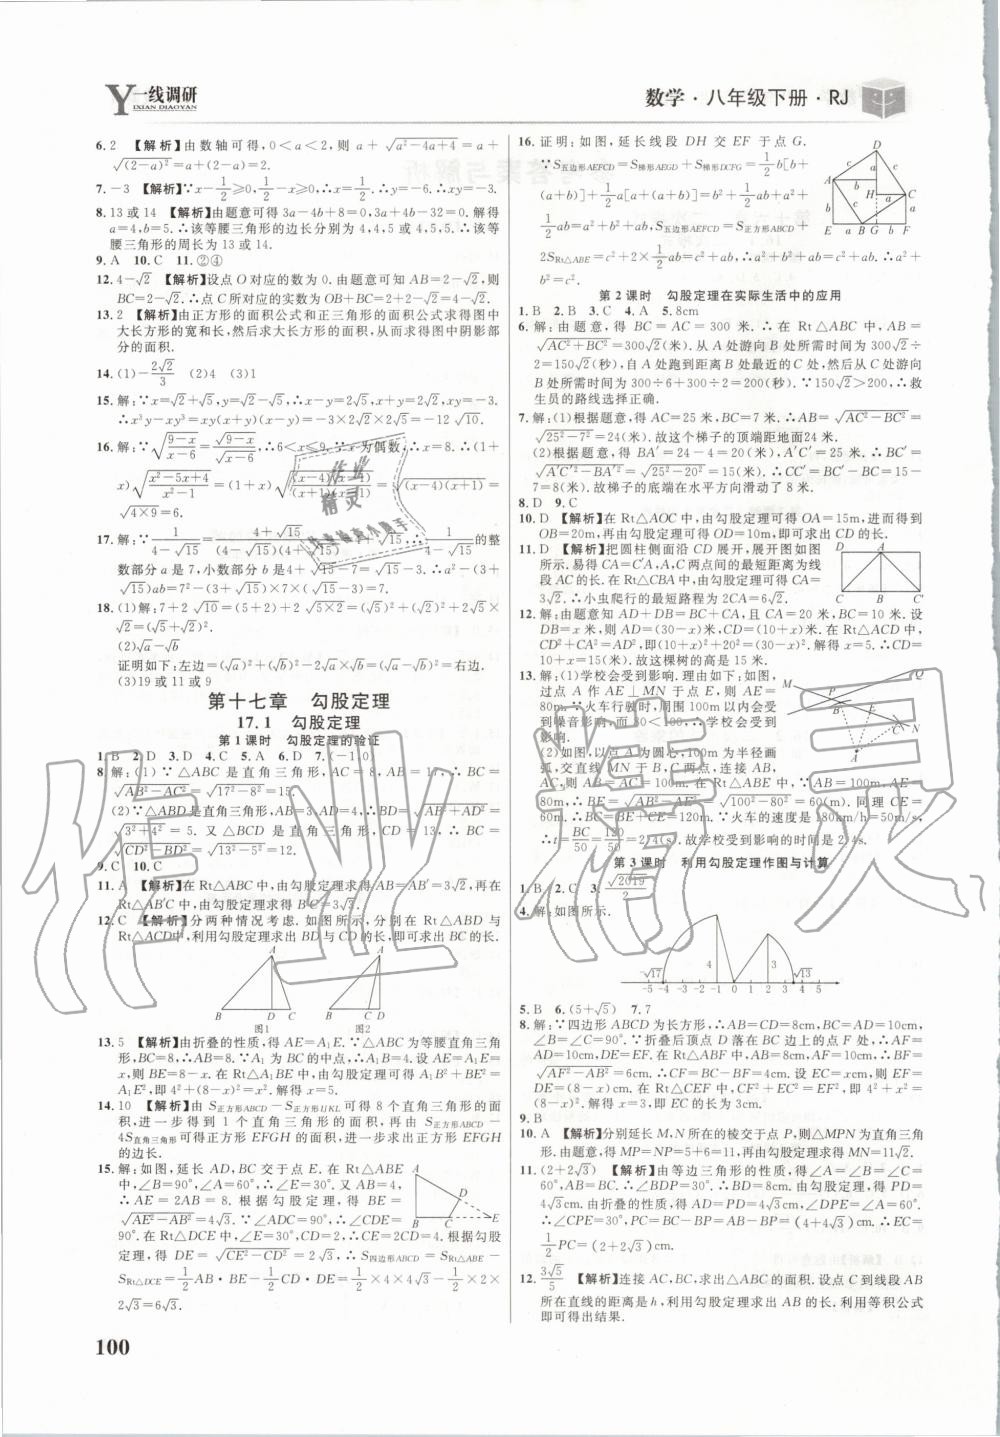 Y一线调研
YIXIAN DIAOYAN
数学·八年级下册·RJ
6.2 【解析】由数轴可得,0<a<2,则a+√(a²-4a+4)=a+
√((2-a)²)=a+2-a=2.
7.-3 【解析】∵x-1/2≥0,1/2-x≥0,∴x=1/2.∴y=-6.∴xy=-3.
8.13或14 【解析】由题意可得3a-4b+8=0,a+4b-32=0.解得
a=4,b=5.∴该等腰三角形的边长分别为4,4,5或4,5,5.∴该等
腰三角形的周长为13或14.
9.A 10.C 11.②④
12.4-√2 【解析】设点O对应的数为0.由题意可知AB=2-√2,则
BC=2-√2.∴点C所对应的实数为OB+BC=2+2-√2=4-√2.
13.2 【解析】由正方形的面积公式和正三角形的面积公式求得图中
大长方形的宽和长,然后求大长方形的面积,从而求得图中阴影部
分的面积.
14.(1)-2√2/3 (2)4 (3)1
15.解:∵x=√2+√5,y=√2-√5,∴x-y=2√5,x+y=2√2,xy=-3.
∴x³y-xy³=xy(x+y)(x-y)=-3×2√2×2√5=-12√10.
16.解:∵√((9-x)/(x-6))=√(9-x)/√(x-6),∴6<x≤9.∵x为偶数,∴x=8.∴(1+
x)√((x²-5x+4)/(x²-1))=(1+x)√((x-4)(x-1)/((x+1)(x-1)))=√((x-4)(x+1))=
√(4×9)=6.
17.解:∵1/(4-√15)=(4+√15)/((4-√15)(4+√15))=4+√15,∴1/(4-√15)的整
数部分a是7,小数部分b是4+√15-7=√15-3.∴a²-(3+
√15)ab=7²-(3+√15)×7×(√15-3)=7.
18.(1)解:7+2√10=(5+2)+2√(5×2)=(√5)²+(√2)²+2√5×
√2=(√5+√2)².
(2)√a-√b
证明如下:左边=(√a)²+(√b)²-2√a×√b=(√a-√b)²=右边.
(3)19或11或9
第十七章 勾股定理
17.1 勾股定理
第1课时 勾股定理的验证
1.B 2.D 3.D 4.C 5.A 6.D 7.(-1,0)
8.解:(1)∵△ABC是直角三角形,AC=8,AB=17,∴BC=
√(AB²-AC²)=√(17²-8²)=15.
(2)∵△ABD是直角三角形,AB=3,AD=4,∴BD=√(AB²+AD²)=
√(3²+4²)=5.又△BCD是直角三角形,CD=13,∴BC=
√(CD²-BD²)=√(13²-5²)=12.
9.C 10.C
11.A 【解析】在Rt△ABC中,由勾股定理求得AB=AB′=3√2,再在
Rt△AB′C′中,由勾股定理求得B′C′=3√3.
12.C 【解析】分两种情况考虑.如图所示,分别在Rt△ABD与
Rt△ACD中,利用勾股定理求出BD与CD的长,即可求出BC的长.
A B D C
图1
A B C D
图2
13.5 【解析】由折叠的性质,得AE=A₁E.∵△ABC为等腰直角三角
形,BC=8,∴AB=8.∵A₁为BC的中点,∴A₁B=4.设AE=A₁E=
x,则BE=8-x.在Rt△A₁BE中,由勾股定理可得A₁B²+BE²=
A₁E²,即4²+(8-x)²=x².解得x=5.
14.10 【解析】由S正方形ABCD-S正方形IJKL可得8个直角三角形的面
积,进一步得到1个直角三角形的面积,再由S正方形ABCD-
4S直角三角形可得正方形EFGH的面积,进一步求出正方形EFGH
的边长.
15.解:如图,延长AD,BC交于点E.在Rt△ABE
中,∠B=90°,∠A=60°,∴∠E=30°.又AB=4,
∴AE=2AB=8.根据勾股定理,得BE=
√(AE²-AB²)=4√3.∵∠ADC=90°,∴∠CDE=
90°.在Rt△DCE中,∠E=30°,CD=2,∴CE=2CD=4.根据勾股
定理,得DE=√(CE²-CD²)=2√3,∴S四边形ABCD=SRt△ABE-
SRt△DCE=1/2AB·BE-1/2CD·DE=1/2×4×4√3-1/2×2×
2√3=6√3.
A D B C E
100
16.证明:如图,延长线段DH交EF于点G.
∵S五边形AEFCD=S梯形AEGD+S梯形DCFG=1/2b[b+
(a+b)]+1/2a[a+(a+b)]=b²+1/2ab+a²+
1/2ab=a²+b²+ab,S五边形AEFCD=S正方形ABCD+
2SRt△ABE=c²+2×1/2ab=c²+ab,∴a²+b²+ab=c²+ab,∴a²+
b²=c².
D c c A b H a C b c c a E a B G F
第2课时 勾股定理在实际生活中的应用
1.B 2.B 3.C 4.A 5.8cm
6.解:由题意,得BC=AC=300米.∴在Rt△ABC中,AB=
√(AC²+BC²)=300√2(米).故从A处游向B处所需时间为300√2÷
2=150√2(秒),自A处跑到距离B处最近的C处,然后从C处游向
B处所需时间为300÷6+300÷2=200(秒).∵150√2>200,∴救
生员的路线选择正确.
7.解:(1)根据题意,得AC=25米,BC=7米.∴AB=√(AC²-BC²)=
√(25²-7²)=24(米).故这个梯子的顶端距地面24米.
(2)根据题意,得BA′=24-4=20(米),A′C′=25米.∴BC′=
√(A′C′²-BA′²)=√(25²-20²)=15(米).∴CC′=BC′-BC=15-
7=8(米).故梯子的底端在水平方向滑动了8米.
8.D 9.C
10.D 【解析】在Rt△AOC中,由勾股定理可得OA=15m,进而得到
OB=20m,再由勾股定理可得OD=15m,即可求出CD的长.
11.D 【解析】把圆柱侧面沿CD展开,展开图如图所
示,易得CA=C′A,A,C两点间的最短距离为线
段AC的长.在Rt△CBA中,由勾股定理可得CA=
3√2.∴小虫爬行的最短路程为2CA=6√2.
D A C B C′
12.解:由题意知AD+DB=BC+CA,且CA=20米,BC=10米.设
DB=x米,则AD=(30-x)米,CD=(10+x)米.在Rt△ACD中,
CD²+CA²=AD²,即(10+x)²+20²=(30-x)².解得x=5.∴CD=
10+x=15(米).故这棵树的高为15米.
13.解:(1)学校会受到影响.理由如下:如图,
过点A作AE⊥MN于点E,则AE=
80m.∵火车行驶时,周围100m以内会受
到噪音影响,而80<100,∴学校会受到
影响.
(2)如图,以点A为圆心,100m为半径画
弧,交直线MN于B,C两点,连接AB,
AC,则AB=AC=100m.在Rt△ABE中,∵AB=100m,AE=
80m,∴BE=√(AB²-AE²)=√(100²-80²)=60(m).同理CE=
60m.∴BC=BE+CE=120m.∵火车的速度是180km/h=50m/s,
∴t=BC/50=120/50=2.4(s).故学校受到影响的时间是2.4s.
M Q P B E C N A
第3课时 利用勾股定理作图与计算
1.B 2.C 3.√2019/2
4.解:如图所示.
-√17 4 2 3 √13
-5 -4 -3 -2 -1 0 1 2 3 4 5
5.B 6.(5+√5) 7.7
8.解:∵四边形ABCD为长方形,∴AB=CD=8cm,BC=AD=10cm,
∠B=∠C=90°.∵折叠后顶点D落在BC边上的点F处,∴AF=
AD=10cm,DE=EF.在Rt△ABF中,AB=8cm,AF=10cm,∴BF=
√(AF²-AB²)=6cm.∴CF=4cm.设EC=xcm,则DE=EF=
(8-x)cm.在Rt△CEF中,CF²+EC²=EF²,即4²+x²=
(8-x)².解得x=3.即EC的长为3cm.
9.B
10.A 【解析】分别延长M,N所在的棱交于点P,则△MPN为直角三角
形.由题意,得MP=NP=5+6=11,再由勾股定理可求得MN=11√2.
11.(2+2√3) 【解析】由等边三角形的性质,得∠A=∠B=∠C=
60°,AB=BC.∴∠BDP=30°.∴BD=8.由勾股定理,得PD=
4√3cm.由折叠的性质,得AD=PD=4√3cm,∠DPE=∠A=60°.
∴∠CPE=30°,PC=BC-BP=AB-BP=(4+4√3)cm.∴EC=
1/2PC=(2+2√3)cm.
12.3√5/5 【解析】连接AC,求出△ABC的面积.设点C到线段AB
所在直线的距离是h,利用勾股定理求出AB的长.利用等积公式
即可得出结果.
作业精灵